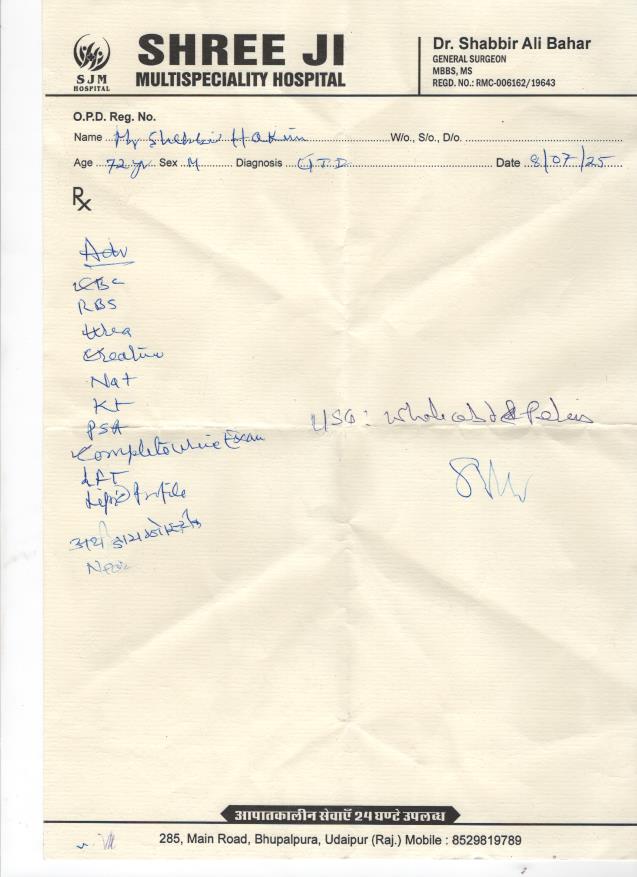 SJM
HOSPITAL
SHREE JI
MULTISPECIALITY HOSPITAL
Dr. Shabbir Ali Bahar
GENERAL SURGEON
MBBS, MS
REGD. NO.: RMC-006162/19643
O.P.D. Reg. No.
Name Mr Shabbir Hakim W/o., S/o., D/o.
Age 72 yr Sex M Diagnosis Date 8/07/25
Rx
Adv
CBC
RBS
Urea
Creatine
Na+
K+
PSA
USG: Whole abd & Pelvis
Complete Urine Exam
LFT
Lipid Profile
आपातकालीन सेवाएँ 24 घण्टे उपलब्ध
285, Main Road, Bhupalpura, Udaipur (Raj.) Mobile : 8529819789